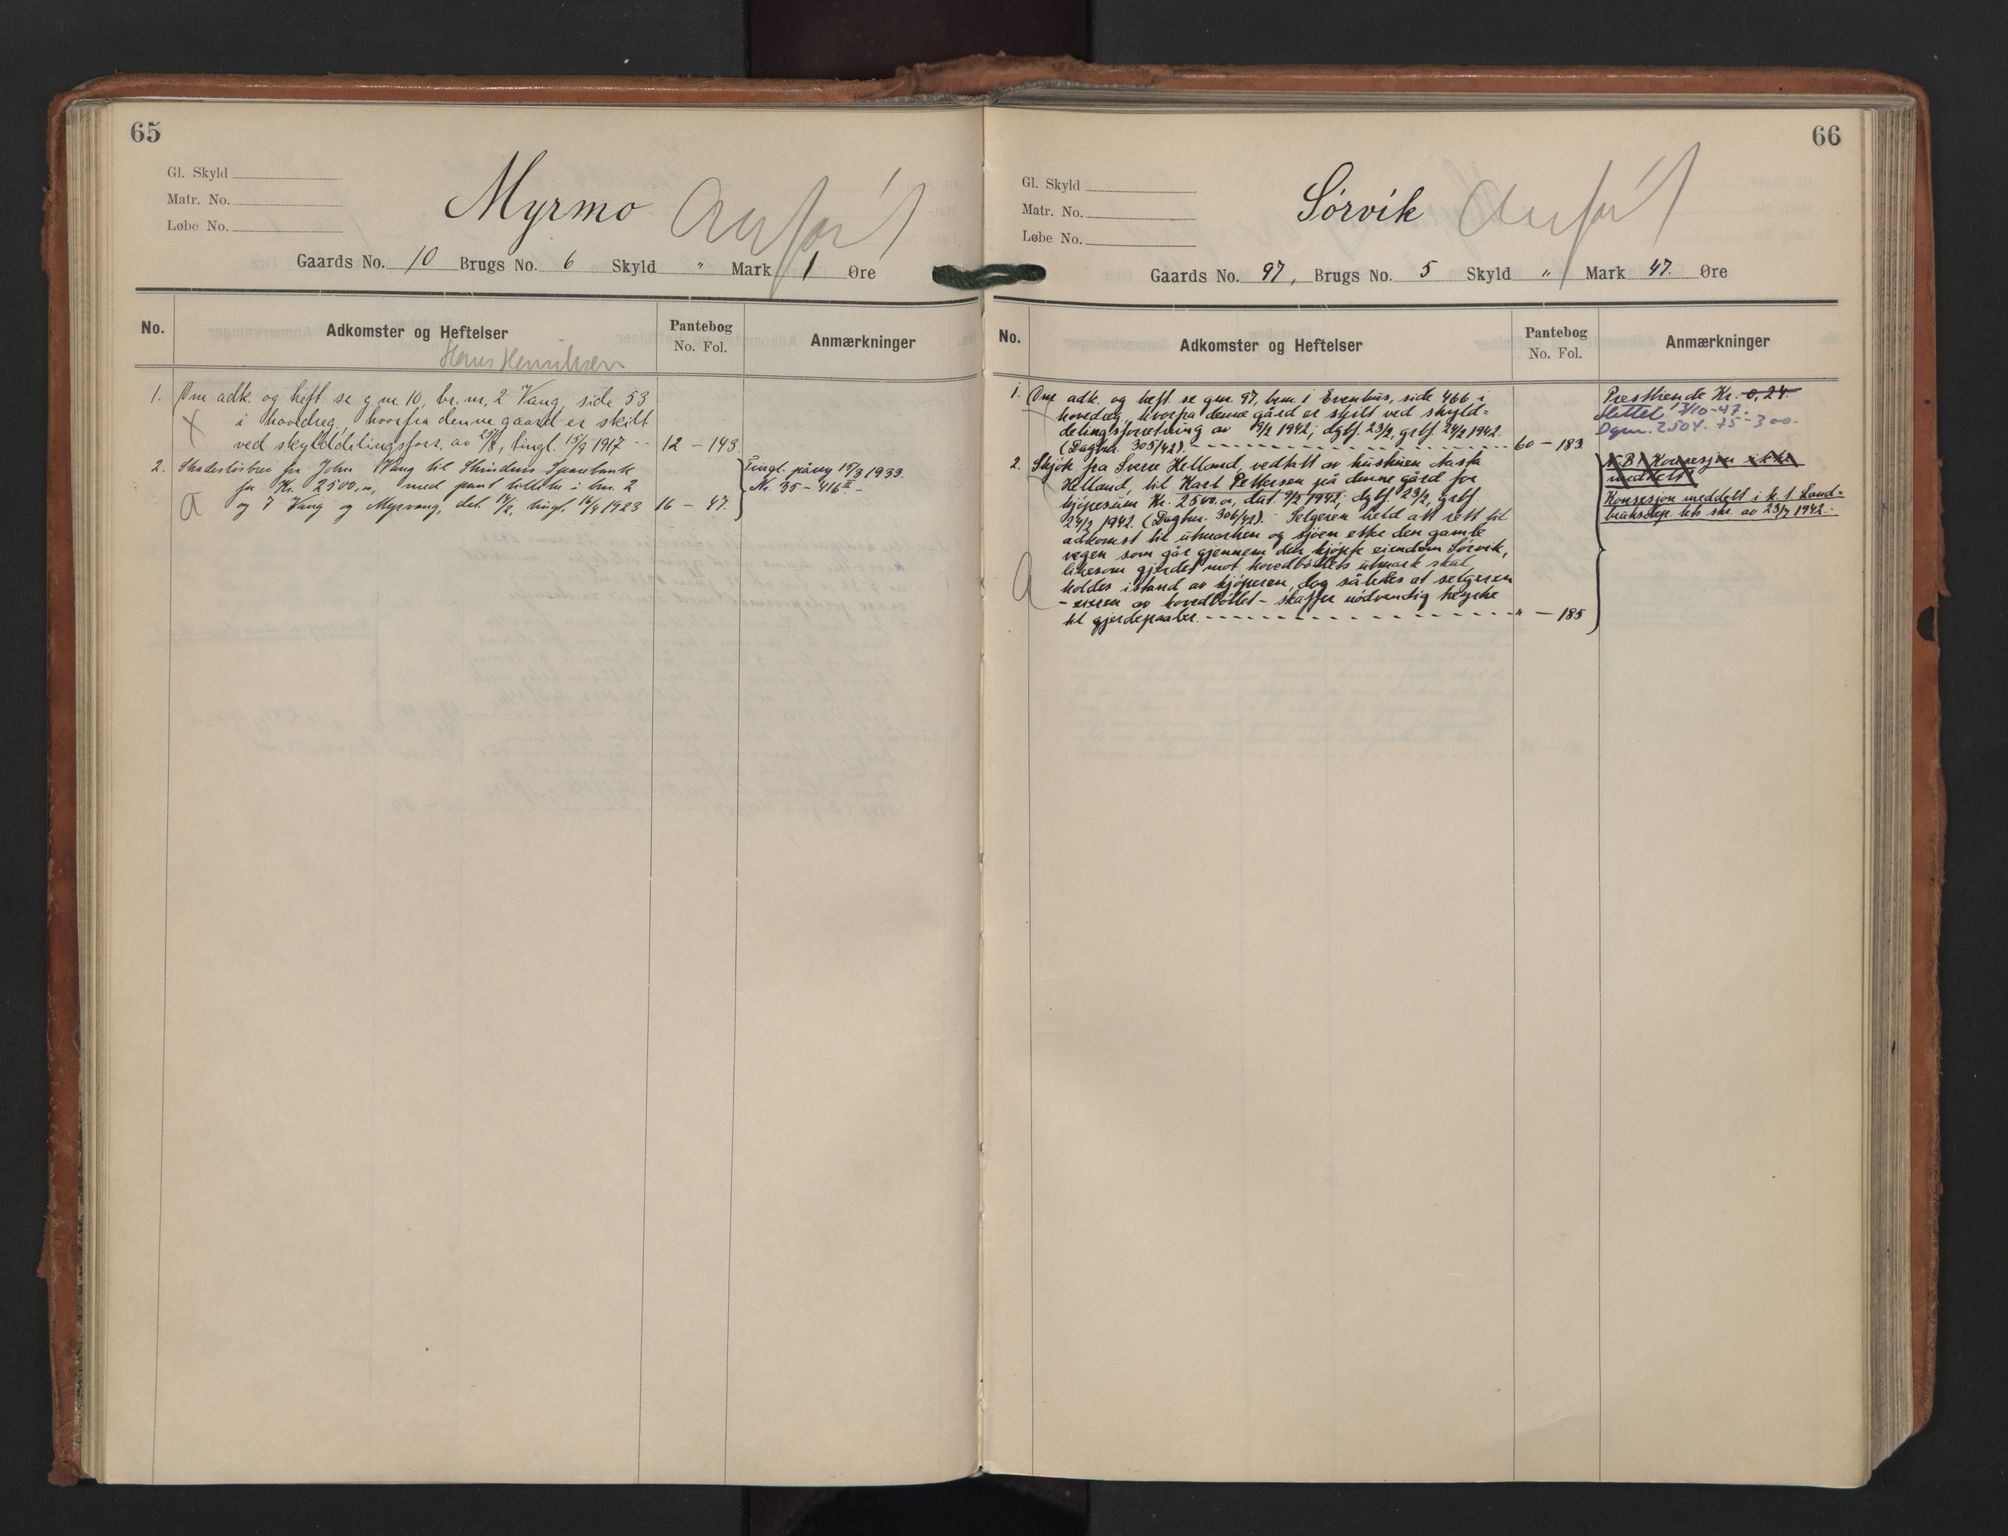 65
Gl. Skyld
Matr. No.
Løbe No.
Myrmo Anført
Gaards No. 10 Brugs No. 6 Skyld " Mark 1 Øre
No. Adkomster og Heftelser Pantebog No. Fol. Anmærkninger
Hans Henriksen
1. Om adk. og heft. se g.nr. 10, br.nr. 2 Vang, side 53
i hovedreg., hvorfra denne gaard er skilt
ved skylddelingsforr. av 25/8, tingl. 15/9 1917 12 – 143.
2. Skadesløsbrev fra John Vang til Sparebank
for Kr. 2500,00, med pant i bnr. 2
og 7 Vang og Myrvang, dat. 14/2, tingl. 16/4 1923 16 – 47.
Tingl. påny 15/3 1933.
Nr. 35 – 416 II –
a
66
Gl. Skyld
Matr. No.
Løbe No.
Sørvik Anført
Gaards No. 97, Brugs No. 5 Skyld " Mark 47. Øre
No. Adkomster og Heftelser Pantebog No. Fol. Anmærkninger
1. Om adk. og heft. se gnr. 97, bnr. 1 Evenhus, side 466 i
hovedreg, hvorfra denne gård er skilt ved skyld=
delingsforretning av 19/2 1942, dgbf. 23/2, grbf. 24/2 1942.
(Dagbnr. 305/42). 60 – 183.
Præstrende Kr. 0,24
Slettet 7/10-47.
Dgnr. 2504. 75-300.
2. Skjøte fra Sverre Helland, vedtatt av hustruen Aasta
Helland, til Karl Pettersen på denne gård for
kjøpesum Kr. 2500.00, dat. 9/2 1942, dgbf. 23/2, grbf.
24/2 1942. (Dagbnr. 306/42). Selgeren beld att rett til
adkomst til utmarken og sjøen etter den gamle
vegen som går gjennem den kjøpte eiendom Sørvik,
likesom gjerdet mot hovedbølets utmark skal
holdes istand av kjøperen, dog således at selgeren
– eieren av hovedbølet – skaffer nødvendig
til gjerdepaaler. " – 185
N.B.! Konsesjon ikke
meddelt
Konsesjon meddelt i h. t. Land=
bruksdep. tets skr. av 23/7 1942.
a